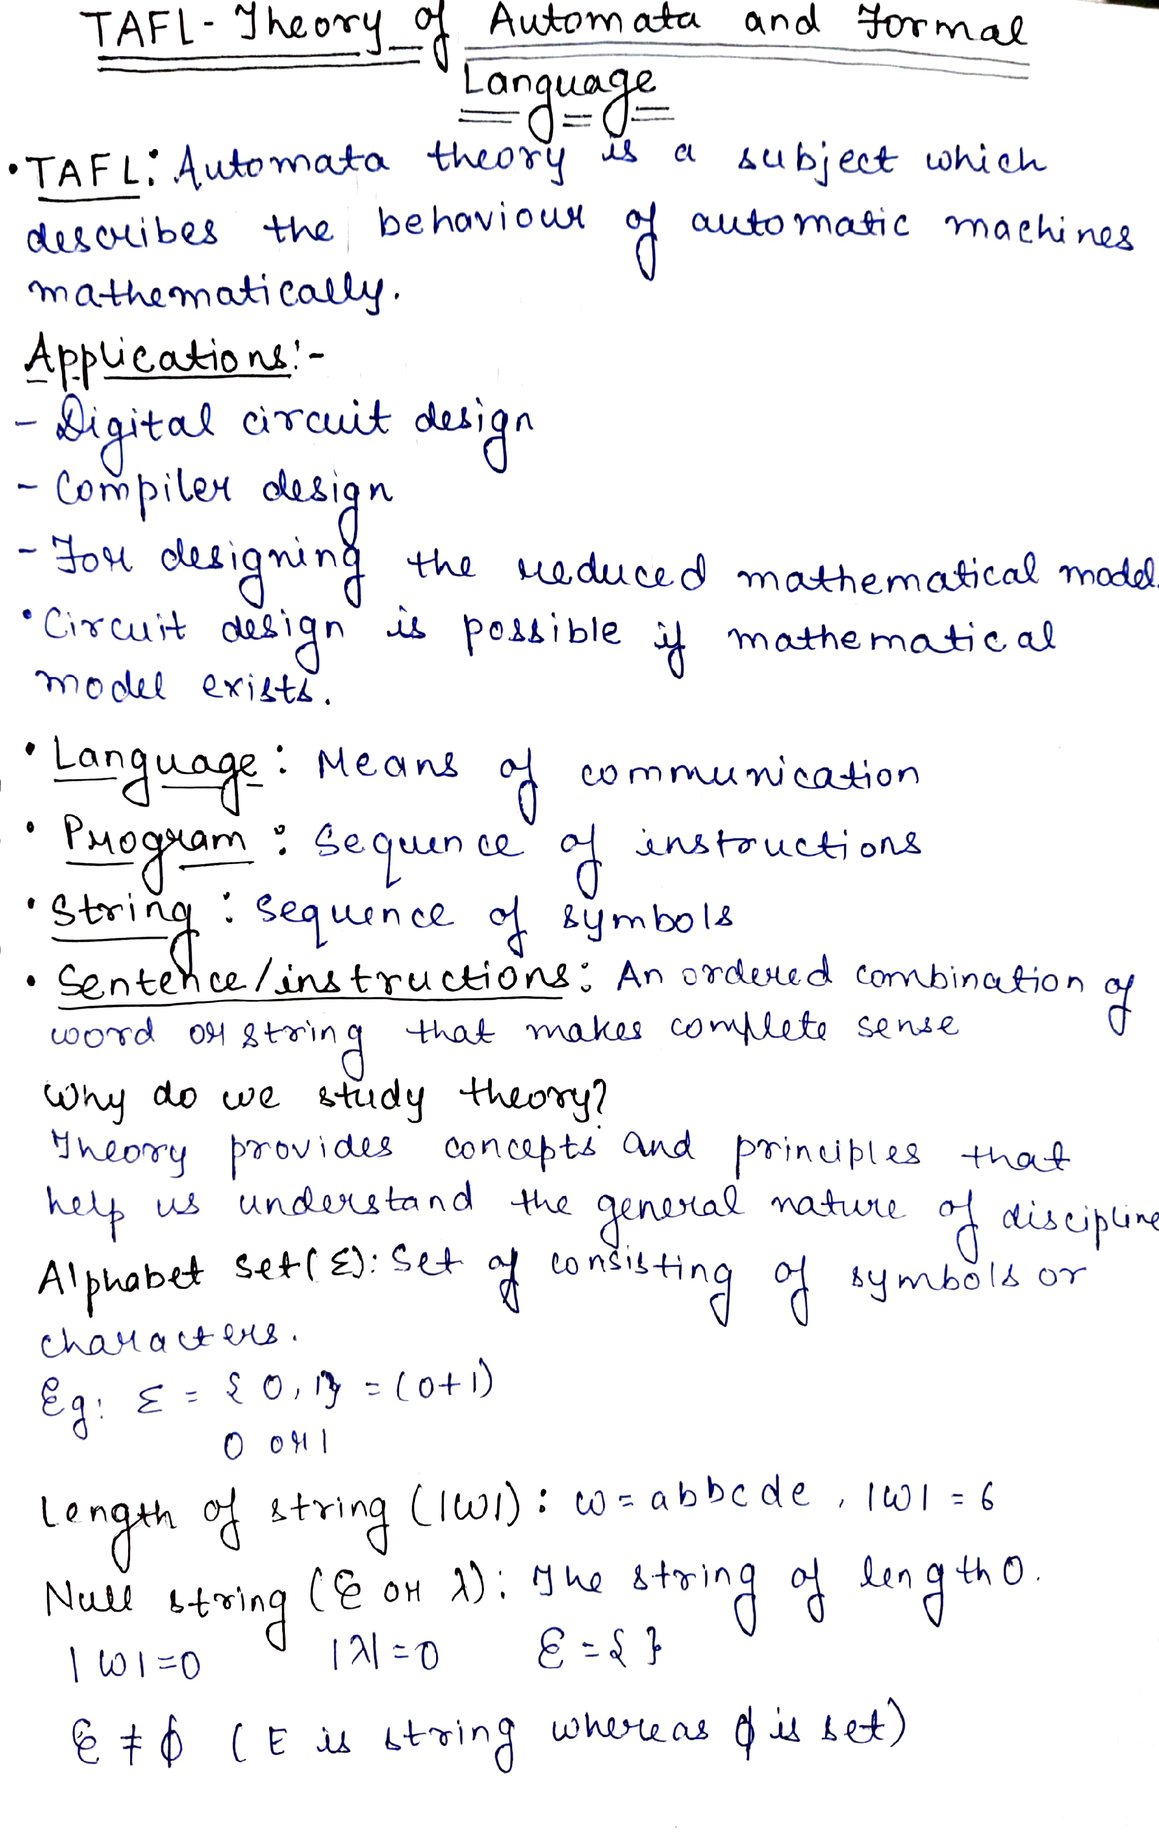 TAFL - Theory of Automata and Formal
Language
• TAFL: Automata theory is a subject which
describes the behaviour of automatic machines
mathematically.
Applications:-
- Digital circuit design
- Compiler design
- For designing the reduced mathematical model.
• Circuit design is possible if mathematical
model exists.
• Language: Means of communication
• Program: Sequence of instructions
• String: Sequence of symbols
• Sentence/instructions: An ordered combination of
word or string that makes complete sense
Why do we study theory?
Theory provides concepts and principles that
help us understand the general nature of discipline
Alphabet set(Σ): Set of consisting of symbols or
characters.
Eg: Σ = {0,1} = (0+1)
0 or 1
Length of string (|w|): w = abbcde, |w| = 6
Null string (ε or λ): The string of length 0.
|w|=0 |λ|=0 ε = { }
ε ≠ ϕ (E is string whereas ϕ is set)